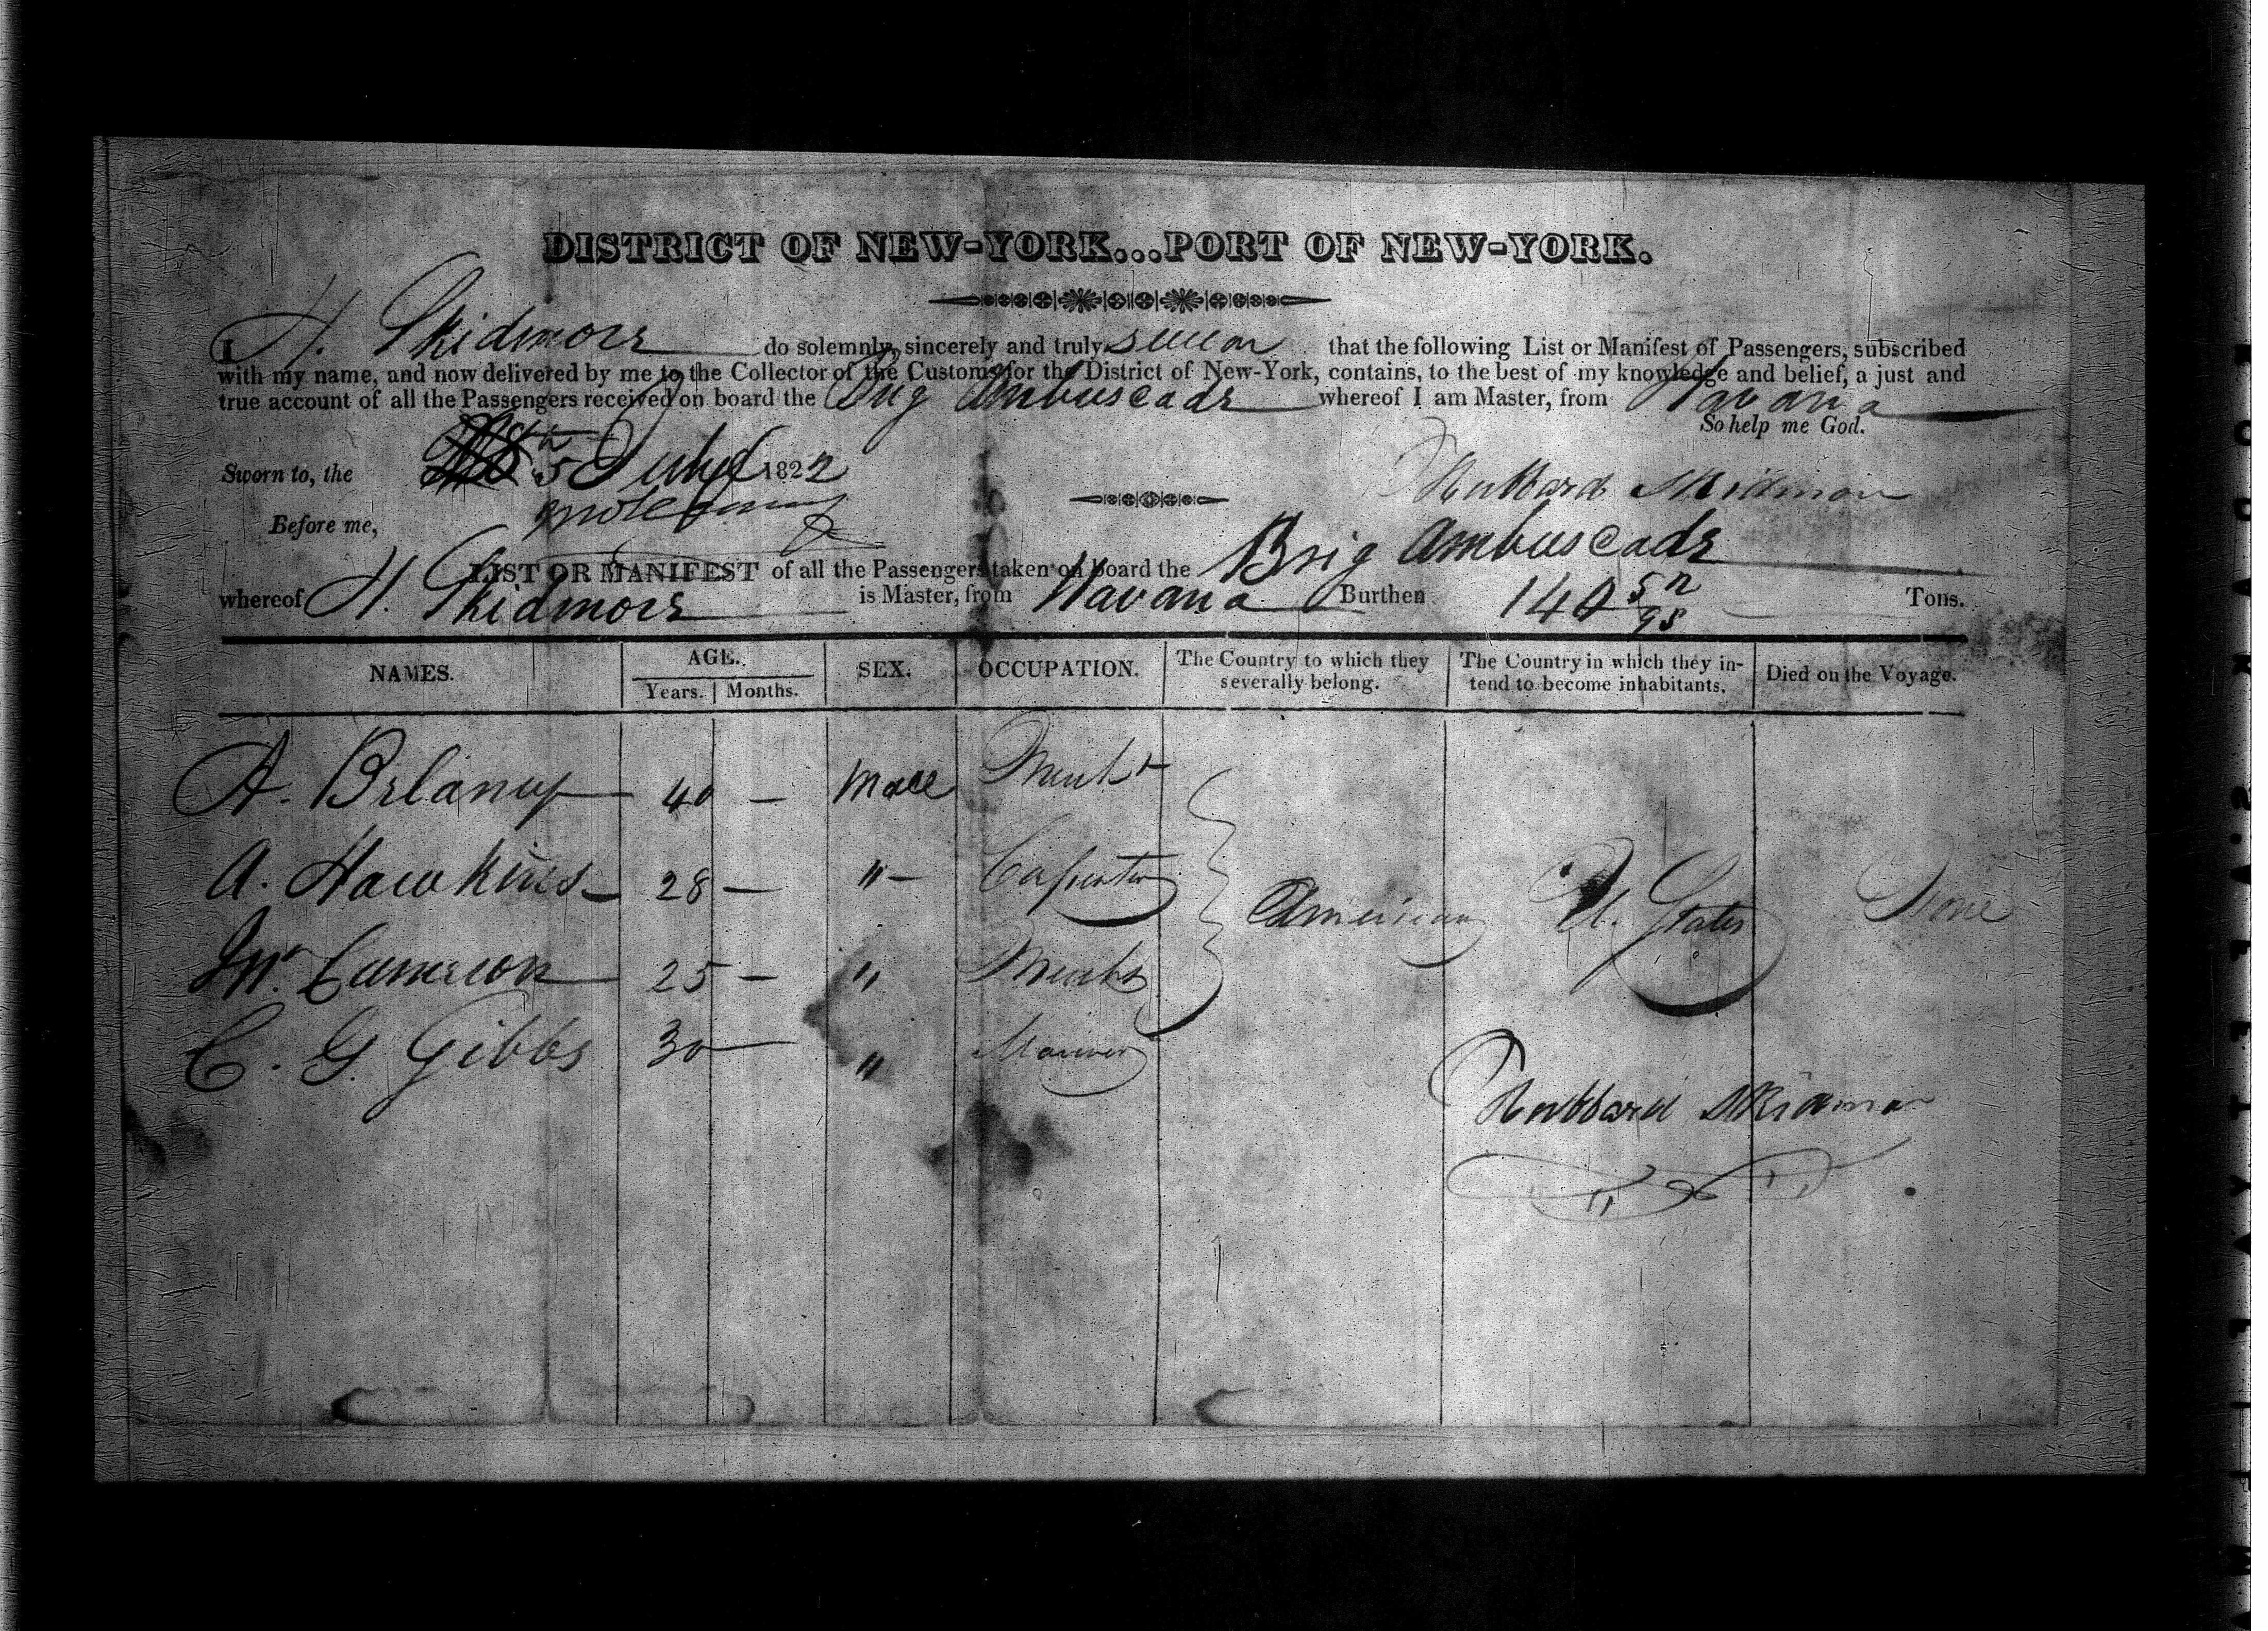 DISTRICT OF NEW-YORK...PORT OF NEW-YORK.
I H. Skidmore do solemnly, sincerely and truly swear that the following List or Manifest of Passengers, subscribed
with my name, and now delivered by me to the Collector of the Customs for the District of New-York, contains, to the best of my knowledge and belief, a just and
true account of all the Passengers received on board the Brig Ambuscade whereof I am Master, from Havana
So help me God.
Sworn to, the 5 July 1822
Hubbard Skidmore
Before me,
LIST OR MANIFEST of all the Passengers taken on board the Brig Ambuscade
whereof H. Skidmore is Master, from Havana Burthen 140 Tons.
NAMES. AGE. Years. Months. SEX. OCCUPATION. The Country to which they severally belong. The Country in which they intend to become inhabitants. Died on the Voyage.
A. Belamy 40 — Male Mercht
A. Hawkins 28 — " Carpenter American U. States None
Mr. Cameron 25 — " Mercht
C. G. Gibbs 30 — " Mariner
Hubbard Skidmore